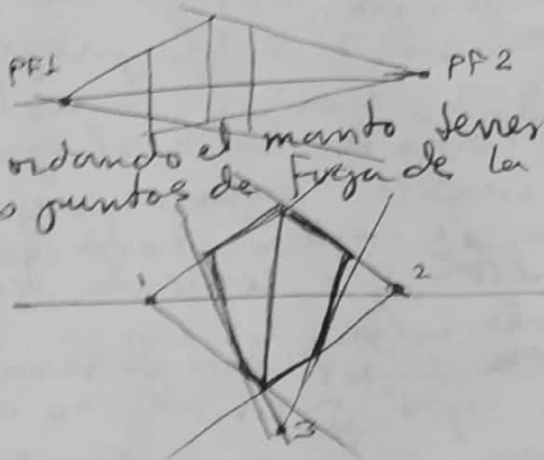 PF1
PF2
ordando el manto terres
o puntos de Fuga de la
1
2
3